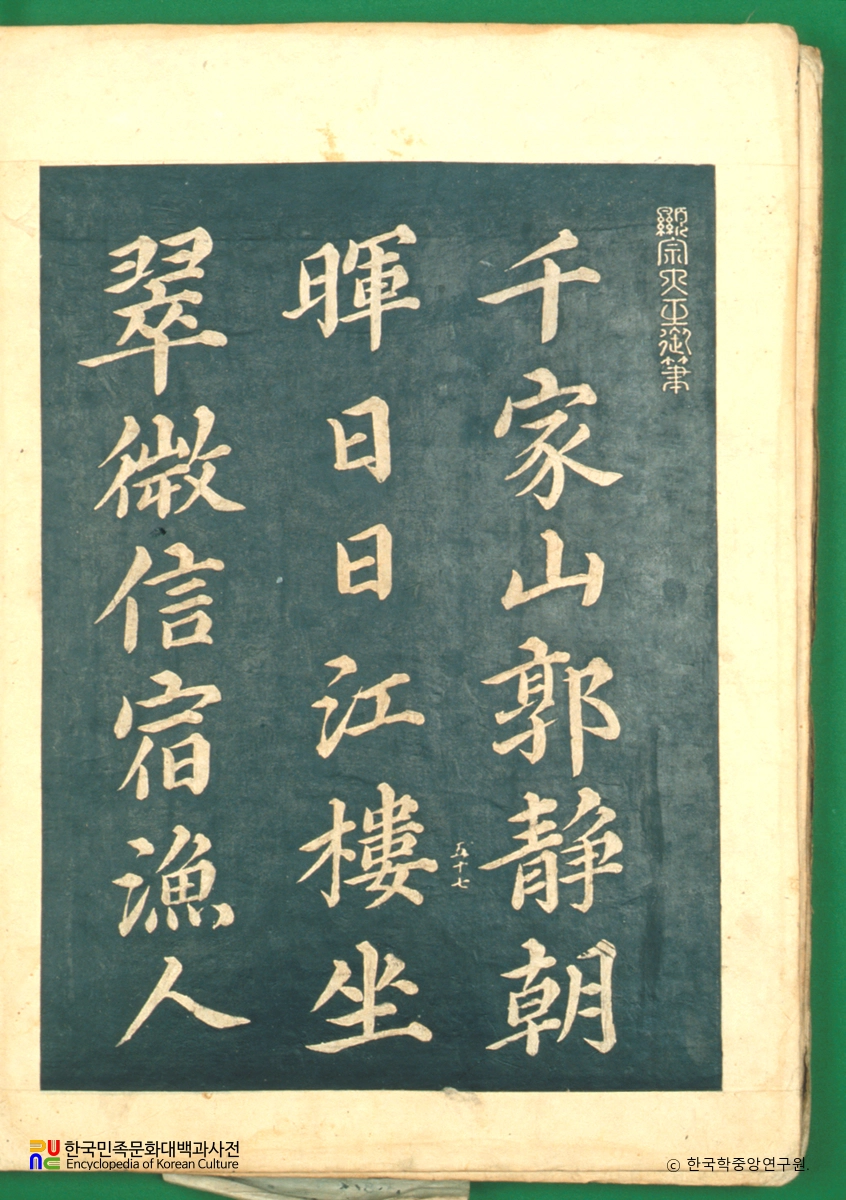 顯宗大王御筆
千家山郭靜朝
五十七
暉日日江樓坐
翠微信宿漁人
한국민족문화대백과사전
Encyclopedia of Korean Culture
© 한국학중앙연구원